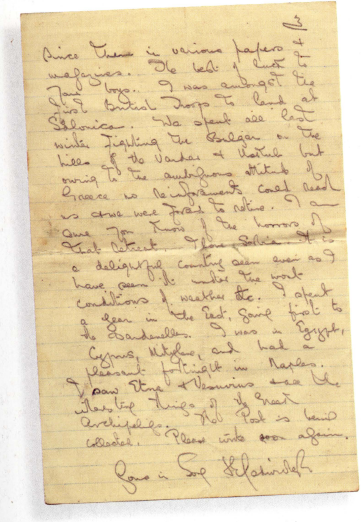 3
since then in various papers &
magazines. The best of luck to
your boys. I was amongst the
first British Troops to land at
Salonica. We spent all last
winter fighting the Bulgar on the
hills of the Vardar & but
owing to the ambiguous attitude of
Greece no reinforcements could reach
us & we were forced to retire. I am
sure you know of the horrors of
that retreat. it is
a delightful country seen even as I
have seen it under the worst
conditions of weather etc. I spent
a year in the East, going first to
the Dardanelles. I was in Egypt,
Cyprus, Mitylene, and had a
pleasant fortnight in Naples.
I saw Etna & Vesuvius & all the
interesting things of the Greek
Archipelago. The Post is being
collected. Please write soon again.
Yours in